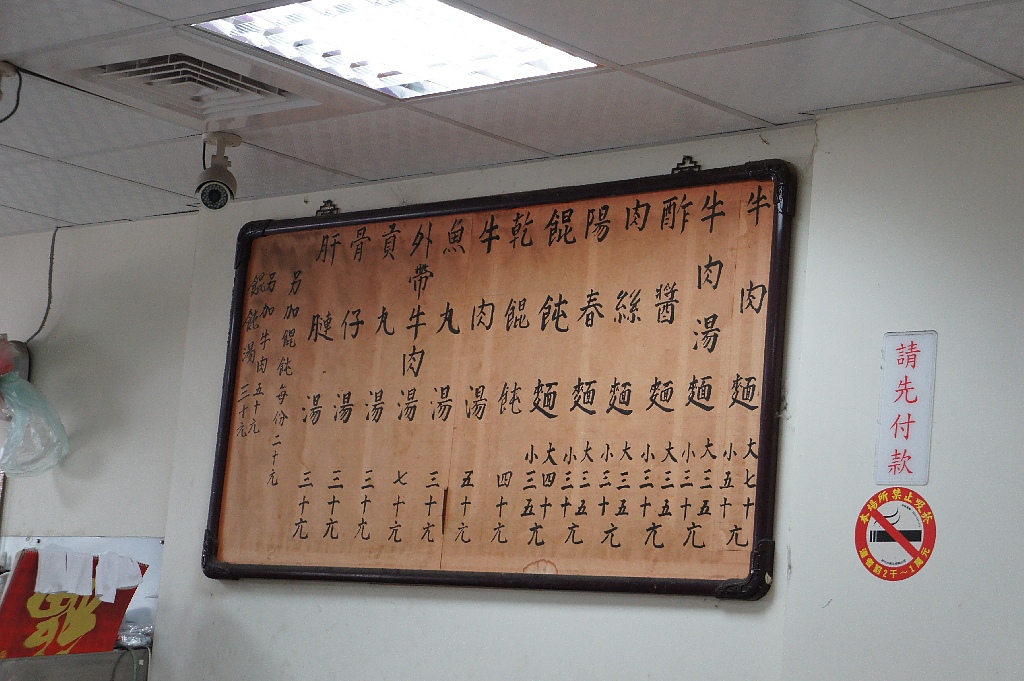 牛肉麵 大七十 小五十 元
牛肉湯麵 大三五 小三十 元
酢醬麵 大三五 小三十 元
肉絲麵 大三五 小三十 元
陽春麵 大三五 小三十 元
餛飩麵 大四十 小三五 元
乾餛飩 四十元
牛肉湯 五十元
魚丸湯 三十元
外帶牛肉湯 七十元
貢丸湯 三十元
骨仔湯 三十元
肝 湯 三十元
另加餛飩每份二十元
另加牛肉五十元
餛飩湯三十元
請先付款
本場所禁止吸菸
違者罰2千~1萬元